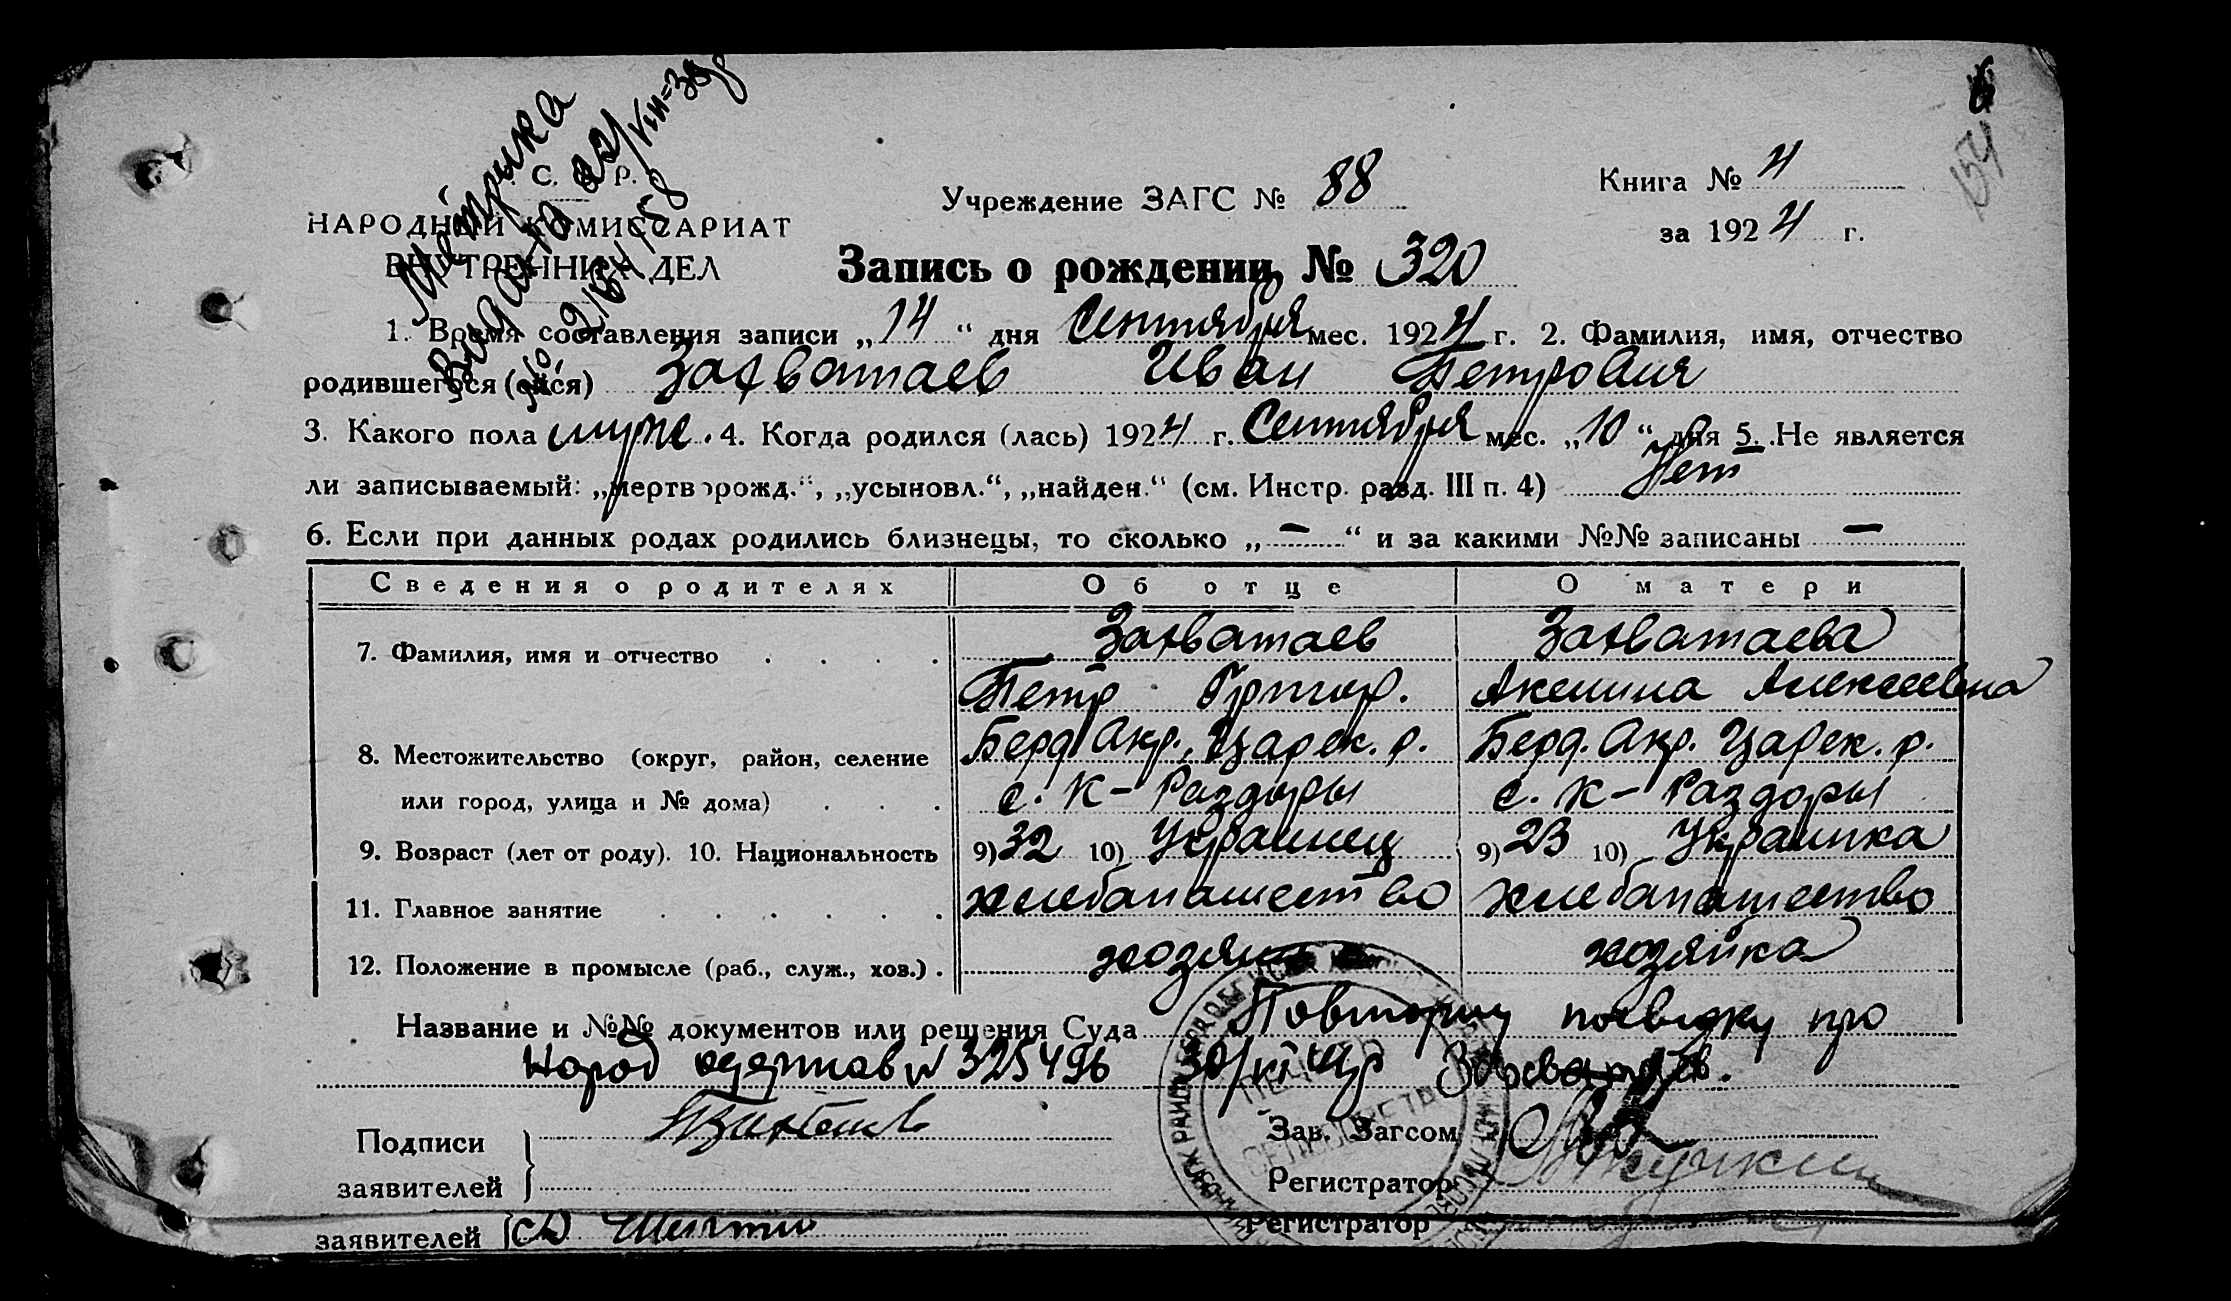 154
Метрика
Видана 22/VIII-38
№ 2164158
С. Р.
НАРОДНЫЙ КОМИССАРИАТ
ВНУТРЕННИХ ДЕЛ
Учреждение ЗАГС № 88
Книга № 4
за 1924 г.
Запись о рождении № 320
1. Время составления записи „14“ дня Сентября мес. 1924 г. 2. Фамилия, имя, отчество
родившегося (ейся) Захватаев Иван Петрович
3. Какого пола муж. 4. Когда родился (лась) 1924 г. Сентября мес. „10“ дня 5. Не является
ли записываемый: „мертворожд.“, „усыновл.“, „найден.“ (см. Инстр. разд. III п. 4) Нет
6. Если при данных родах родились близнецы, то сколько „—“ и за какими №№ записаны —
Сведения о родителях Об отце О матери
7. Фамилия, имя и отчество Захватаев Захватаева
Петр Григор. Акелина Алексеевна
8. Местожительство (округ, район, селение Берд. Окр., Царек. р. Берд. Окр. Царек. р.
или город, улица и № дома) с. К-Раздоры с. К-Раздоры
9. Возраст (лет от роду). 10. Национальность 9) 32 10) Украинец 9) 23 10) Украинка
11. Главное занятие хлебопашество хлебопашество
12. Положение в промысле (раб., служ., хоз.) хозяин хозяйка
Название и №№ документов или решения Суда Повторну посвідку про
народ одержав № 325496 30/ Захватаев.
Подписи
заявителей
Зав. Загсом
Регистратор
заявителей
Регистратор